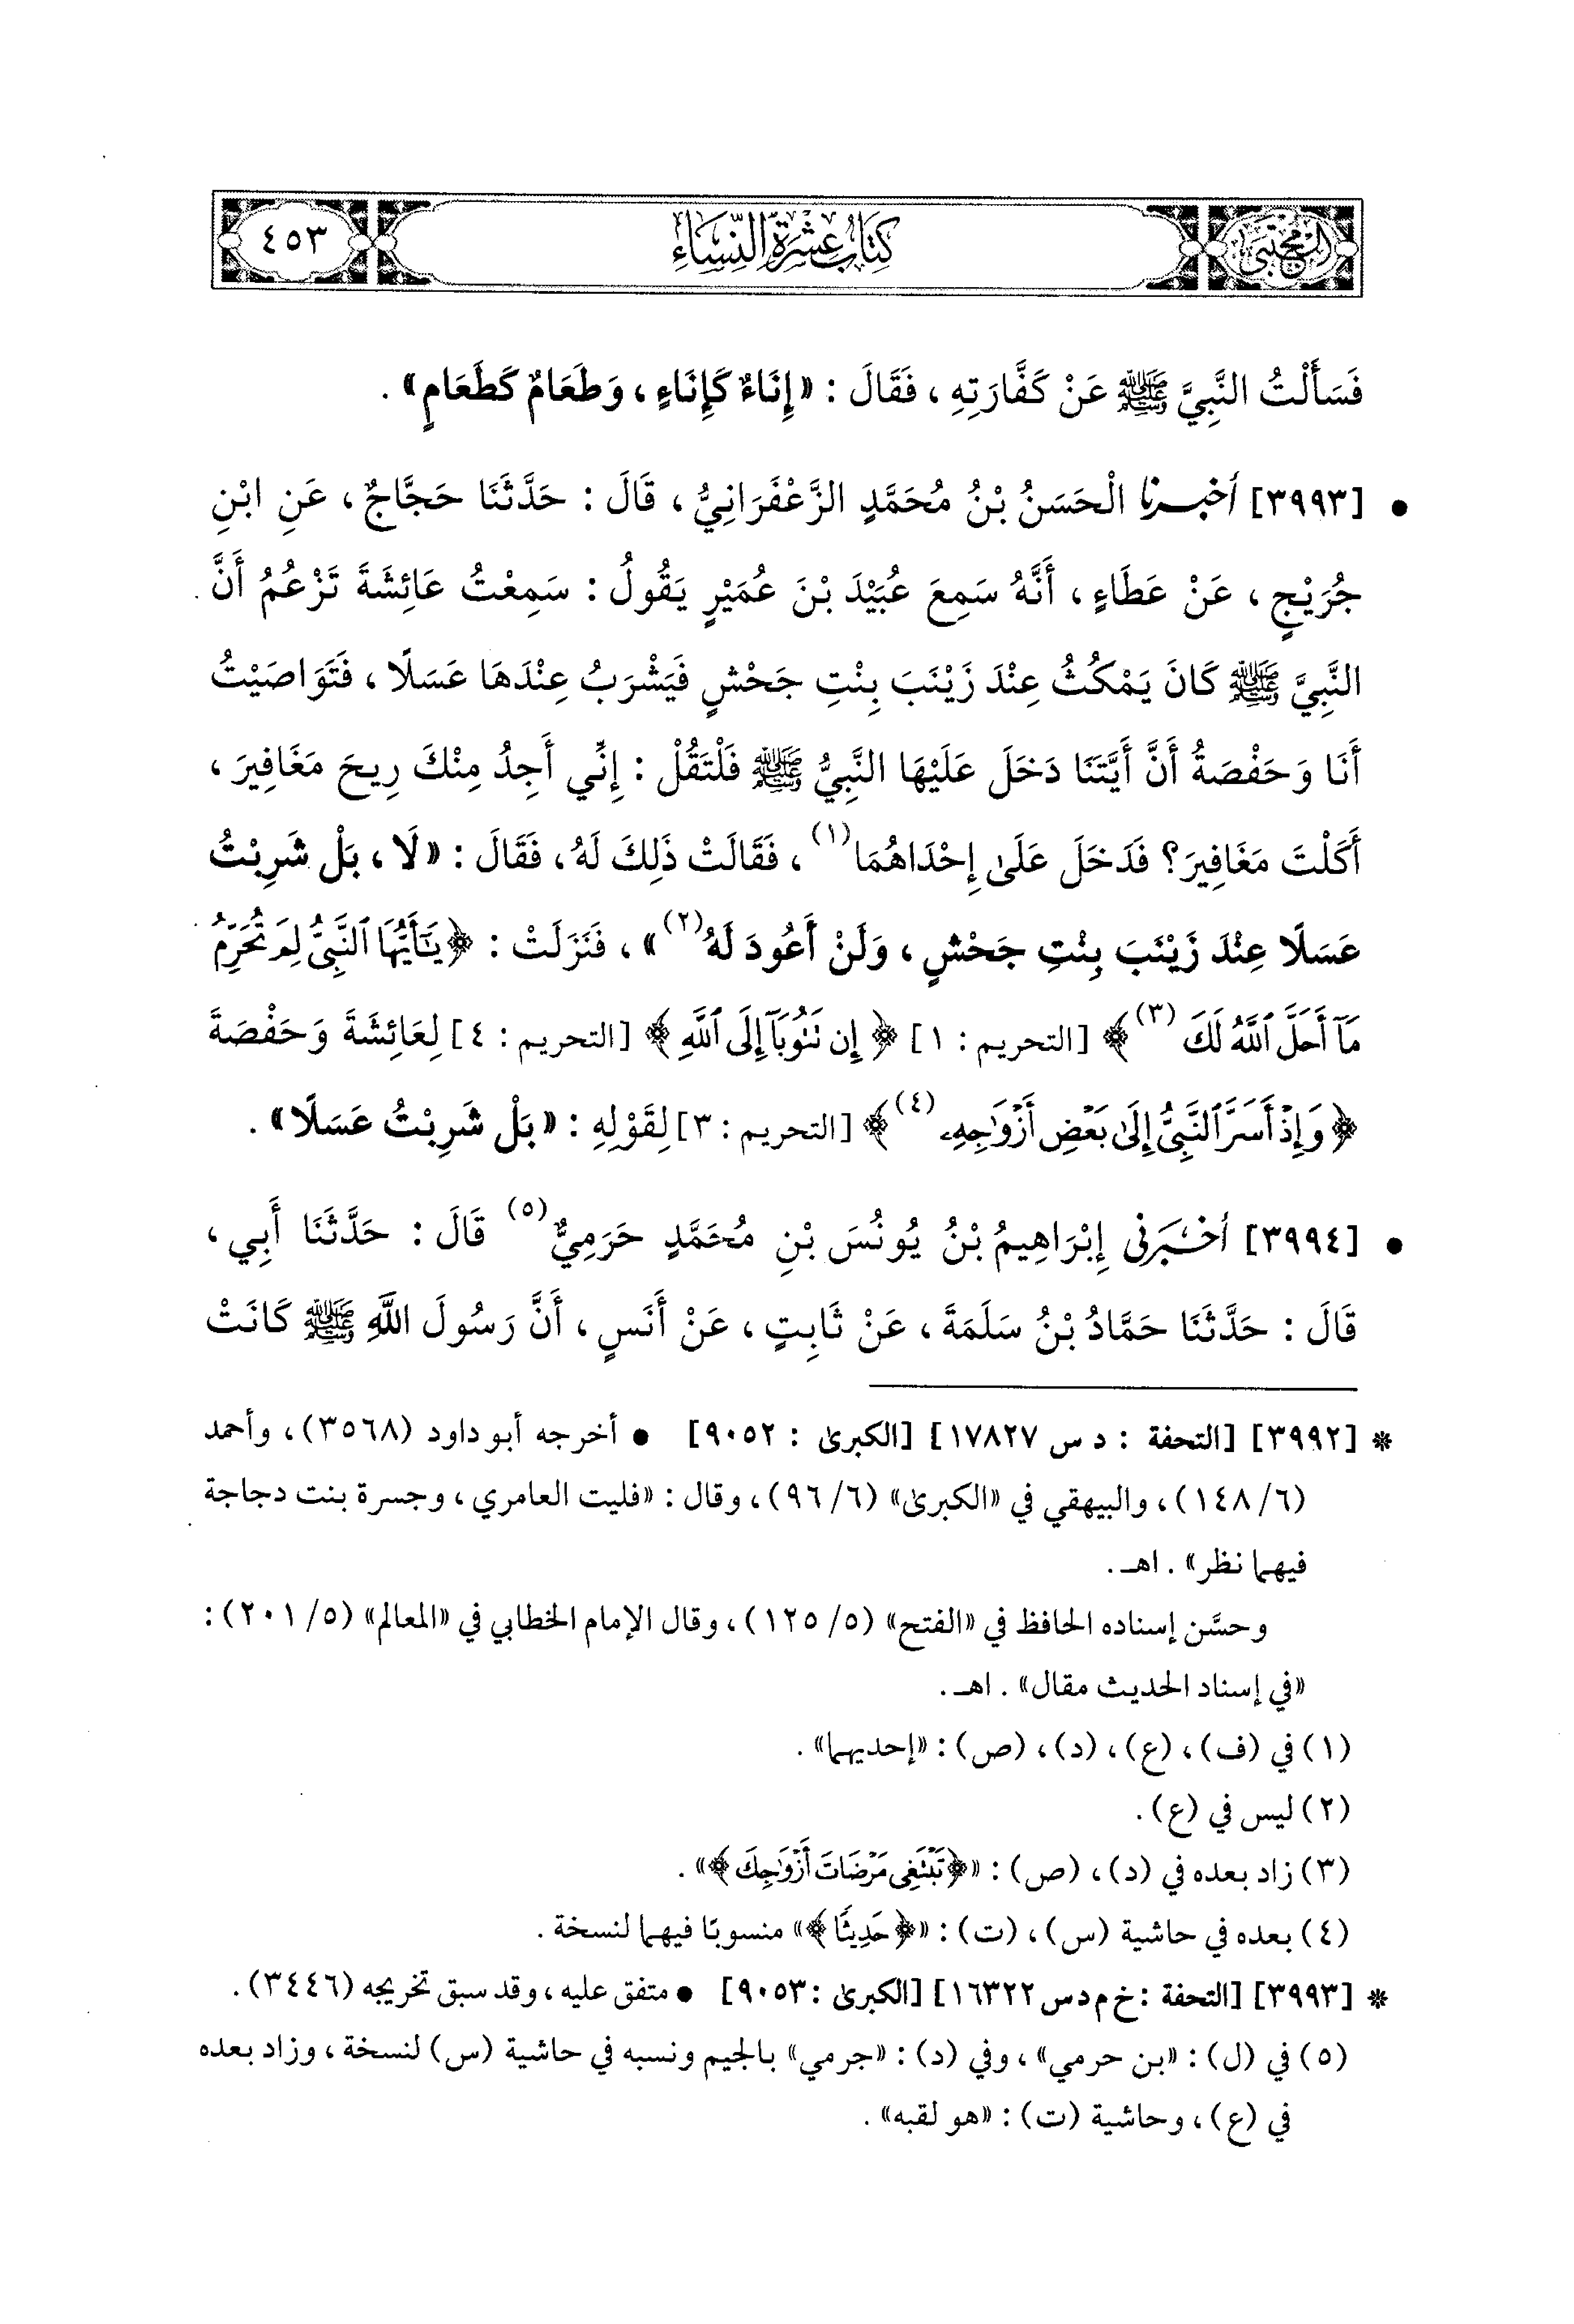 المجتبى
كتاب عشرة النساء
٤٥٣
فَسَأَلْتُ النَّبِيَّ ﷺ عَنْ كَفَّارَتِهِ ، فَقَالَ : «إِنَاءٌ كَإِنَاءٍ ، وَطَعَامٌ كَطَعَامٍ» .
• [٣٩٩٣] أخبرنا الْحَسَنُ بْنُ مُحَمَّدٍ الزَّعْفَرَانِيُّ ، قَالَ : حَدَّثَنَا حَجَّاجٌ ، عَنِ ابْنِ
جُرَيْجٍ ، عَنْ عَطَاءٍ ، أَنَّهُ سَمِعَ عُبَيْدَ بْنَ عُمَيْرٍ يَقُولُ : سَمِعْتُ عَائِشَةَ تَزْعُمُ أَنَّ
النَّبِيَّ ﷺ كَانَ يَمْكُثُ عِنْدَ زَيْنَبَ بِنْتِ جَحْشٍ فَيَشْرَبُ عِنْدَهَا عَسَلًا ، فَتَوَاصَيْتُ
أَنَا وَحَفْصَةُ أَنَّ أَيَّتَنَا دَخَلَ عَلَيْهَا النَّبِيُّ ﷺ فَلْتَقُلْ : إِنِّي أَجِدُ مِنْكَ رِيحَ مَغَافِيرَ ،
أَكَلْتَ مَغَافِيرَ؟ فَدَخَلَ عَلَىٰ إِحْدَاهُمَا(١) ، فَقَالَتْ ذَلِكَ لَهُ ، فَقَالَ : «لَا ، بَلْ شَرِبْتُ
عَسَلًا عِنْدَ زَيْنَبَ بِنْتِ جَحْشٍ ، وَلَنْ أَعُودَ لَهُ(٢)» ، فَنَزَلَتْ : ﴿يَـٰٓأَيُّهَا ٱلنَّبِىُّ لِمَ تُحَرِّمُ
مَآ أَحَلَّ ٱللَّهُ لَكَ(٣)﴾ [التحريم : ١] ﴿إِن تَتُوبَآ إِلَى ٱللَّهِ﴾ [التحريم : ٤] لِعَائِشَةَ وَحَفْصَةَ
﴿وَإِذْ أَسَرَّ ٱلنَّبِىُّ إِلَىٰ بَعْضِ أَزْوَٰجِهِۦ(٤)﴾ [التحريم : ٣] لِقَوْلِهِ : «بَلْ شَرِبْتُ عَسَلًا» .
• [٣٩٩٤] أخبرني إِبْرَاهِيمُ بْنُ يُونُسَ بْنِ مُحَمَّدٍ حَرَمِيٌّ(٥) قَالَ : حَدَّثَنَا أَبِي ،
قَالَ : حَدَّثَنَا حَمَّادُ بْنُ سَلَمَةَ ، عَنْ ثَابِتٍ ، عَنْ أَنَسٍ ، أَنَّ رَسُولَ اللَّهِ ﷺ كَانَتْ
* [٣٩٩٢] [التحفة : د س ١٧٨٢٧] [الكبرىٰ : ٩٠٥٢] • أخرجه أبو داود (٣٥٦٨) ، وأحمد
(٦/ ١٤٨) ، والبيهقي في «الكبرىٰ» (٦/ ٩٦) ، وقال : «فليت العامري ، وجسرة بنت دجاجة
فيهما نظر» . اهـ.
وحسَّن إسناده الحافظ في «الفتح» (٥/ ١٢٥) ، وقال الإمام الخطابي في «المعالم» (٥/ ٢٠١) :
«في إسناد الحديث مقال» . اهـ.
(١) في (ف) ، (ع) ، (د) ، (ص) : «إحديهما» .
(٢) ليس في (ع) .
(٣) زاد بعده في (د) ، (ص) : «﴿تَبْتَغِى مَرْضَاتَ أَزْوَٰجِكَ﴾» .
(٤) بعده في حاشية (س) ، (ت) : «﴿حَدِيثًا﴾» منسوبًا فيهما لنسخة .
* [٣٩٩٣] [التحفة : خ م د س ١٦٣٢٢] [الكبرىٰ : ٩٠٥٣] • متفق عليه ، وقد سبق تخريجه (٣٤٤٦) .
(٥) في (ل) : «بن حرمي» ، وفي (د) : «جرمي» بالجيم ونسبه في حاشية (س) لنسخة ، وزاد بعده
في (ع) ، وحاشية (ت) : «هو لقبه» .